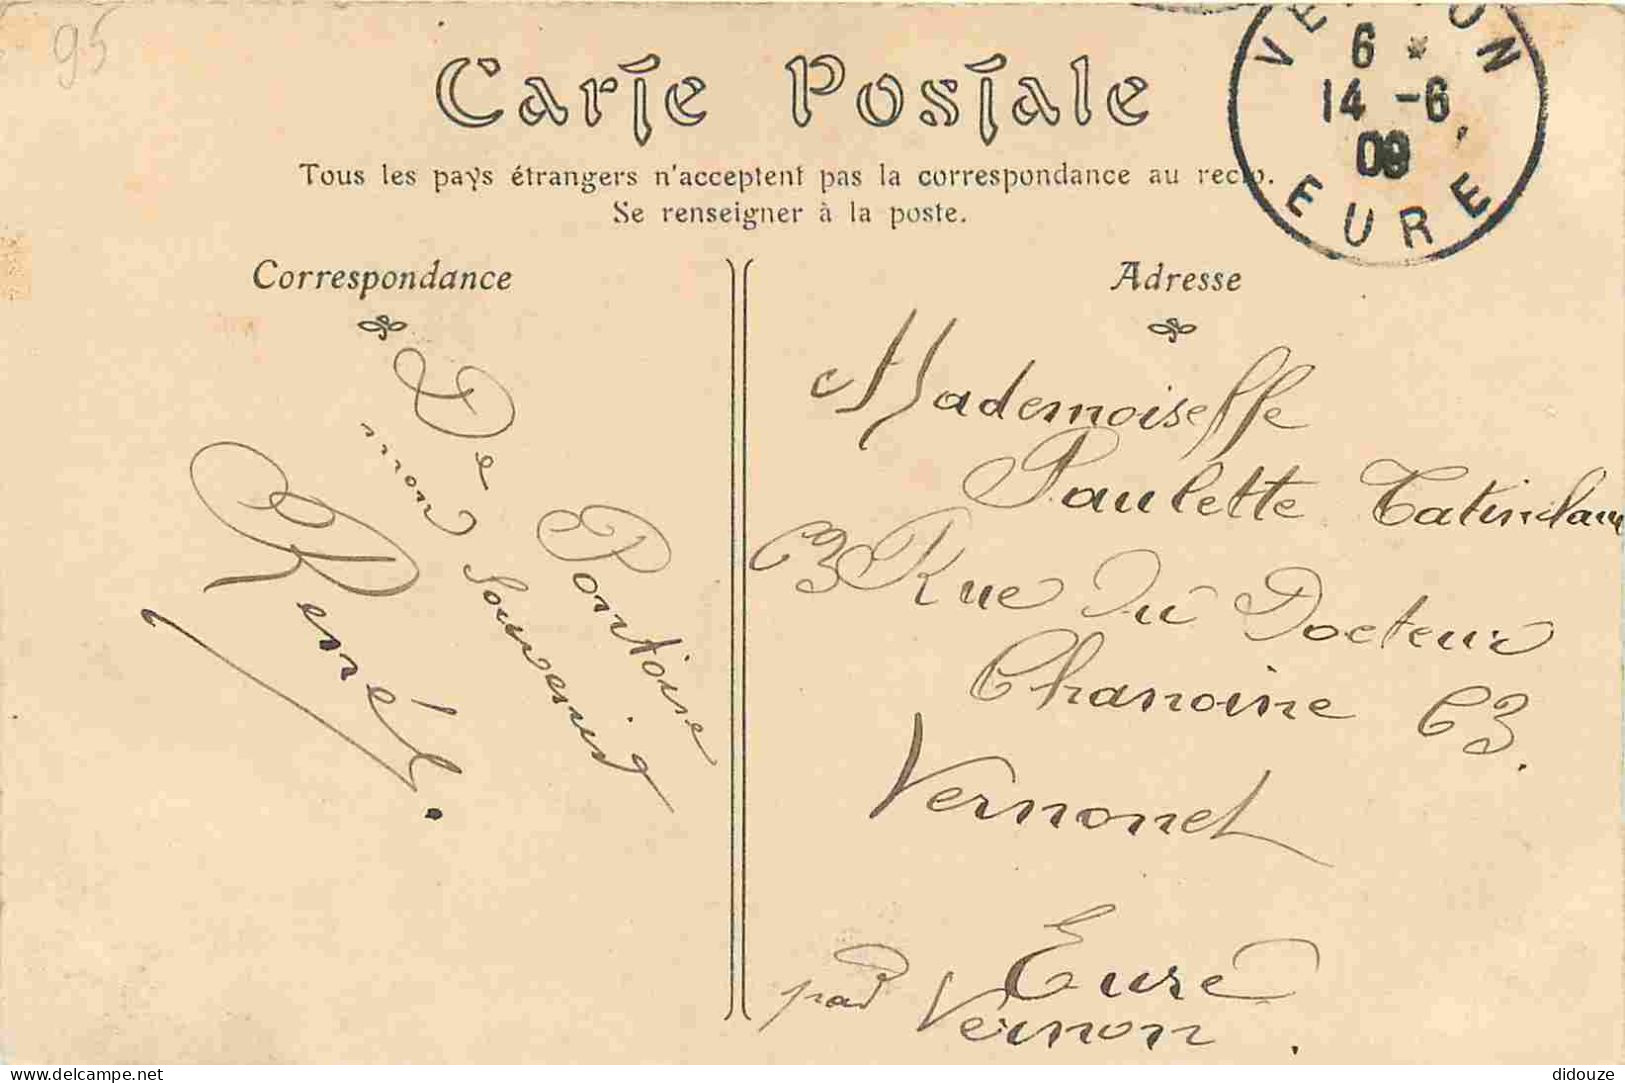 95
Carte Postale
VERNON
6 *
14 -6
09
EURE
Tous les pays étrangers n'acceptent pas la correspondance au recto.
Se renseigner à la poste.
Correspondance
De Pontoise
mon Souvenir
René
Adresse
Mademoiselle
Paulette
63 Rue Du Docteur
Chanoine 63.
Vernonet
Eure
par Vernon.
www.delcampe.net
didouze